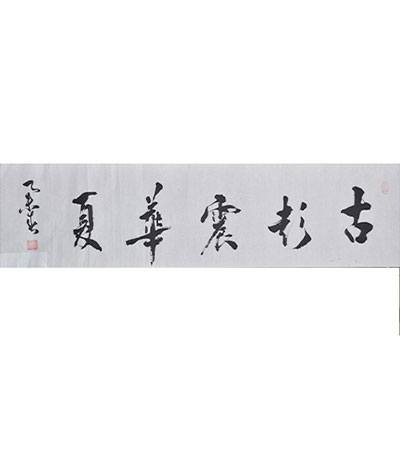 古彭震華夏